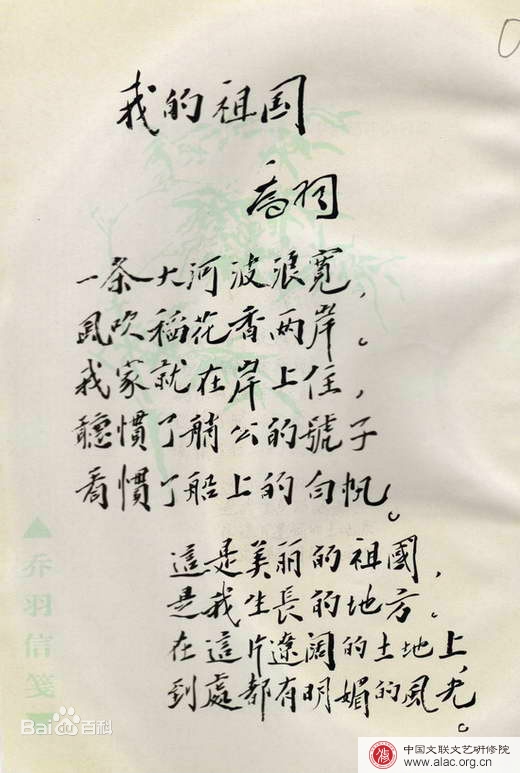 我的祖国
喬羽
一条大河波浪寬，
風吹稻花香两岸。
我家就在岸上住，
聽慣了艄公的號子
看慣了船上的白帆。
這是美丽的祖國，
是我生長的地方.
在這片遼阔的土地上，
到處都有明媚的風光。
乔羽信笺
Bai百科
中国文联文艺研修院
www.alac.org.cn